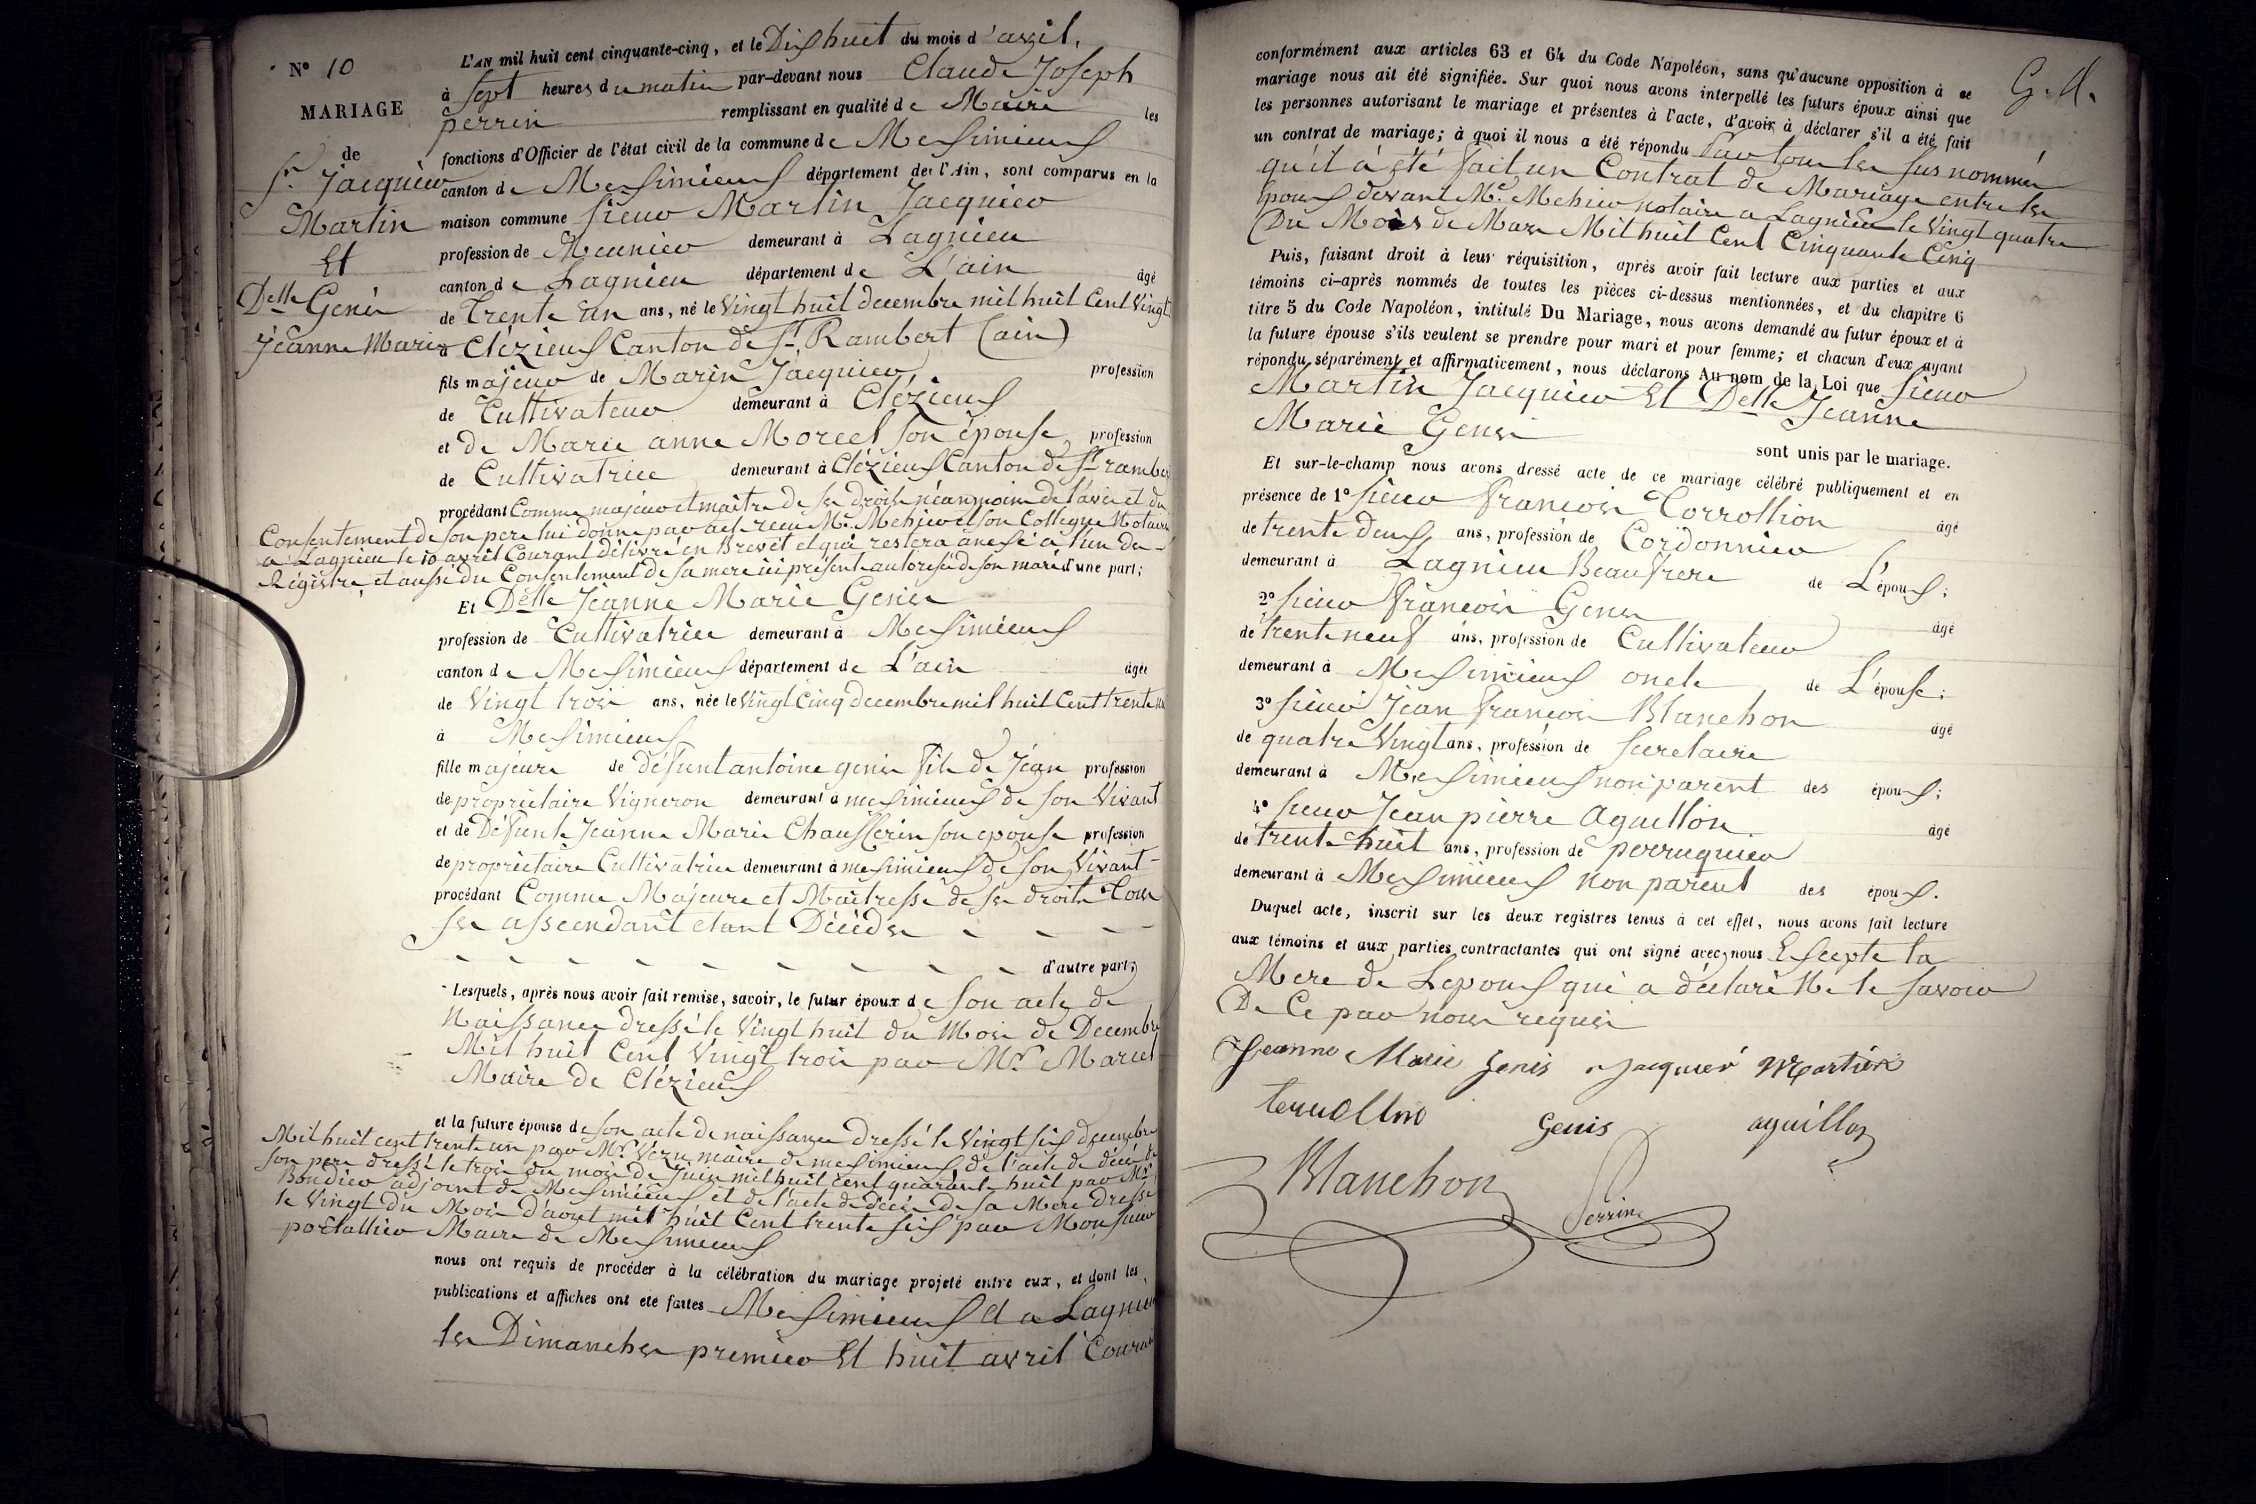 N° 10
MARIAGE
de
Sr. Jacquier
Martin
Et
Delle Genis
Jeanne Marie
L'AN mil huit cent cinquante-cinq, et le Dix huit du mois d'avril,
à Sept heures du matin par-devant nous Claude Joseph
perrin remplissant en qualité de Maire les
fonctions d'Officier de l'état civil de la commune de Meximieux
canton de Meximieux département de l'Ain, sont comparus en la
maison commune sieur Martin Jacquier
profession de Meunier demeurant à Lagnieu
canton de Lagnieu département de L'ain âgé
de Trente un ans, né le Vingt huit decembre mil huit Cent Vingt
à Clézieux Canton de St. Rambert (ain)
fils majeur de Marin Jacquier profession
de Cultivateur demeurant à Clézieux
et de Marie anne Morcel son épouse profession
de Cultivatrice demeurant à Clézieux Canton de St rambert
procédant Comme majeur et maître de ses droits néanmoins de l'avis et du
Consentement de son pere lui donné par acte reçu Me. Mehier et son Collegue Notaires
a Lagnieu le 10 avril Courant délivré en Brevet et qui restera anexé a l'un des
Régistre, et aussi du Consentement de sa mere ici présente autorisé de son mari d'une part;
Et Delle Jeanne Marie Genis
profession de Cultivatrice demeurant à Meximieux
canton de Meximieux département de L'ain âgée
de Vingt trois ans, née le Vingt Cinq decembre mil huit Cent trente un
à Meximieux
fille majeure de défunt antoine genis fils de Jean profession
de propriétaire Vigneron demeurant à meximieux de son Vivant
et de Défunte Jeanne Marie Chausserin son epouse profession
de propriétaire Cultivatrice demeurant à meximieux de son Vivant
procédant Comme Majeure et Maîtresse de ses droits Tous
ses assendant étant Décédés
d'autre part;
Lesquels, après nous avoir fait remise, savoir, le futur époux de son acte de
Naissance dressé le Vingt huit du Mois de Decembre
Mil huit Cent Vingt trois par Mr. Marcel
Maire de Clézieux
et la future épouse de son acte de naissance dressé le Vingt six decembre
Mil huit cent trente un par Mr. Vezu maire de meximieux, de l'acte de décé de
son pere dressé le trois du mois de Juin mil huit cent quarante huit par Mr.
Bondier adjoint de Meximieux et de l'acte de décés de sa Mere dressé
le Vingt du Mois d'aout mil huit Cent trente six par Monsieur
portallier Maire de Meximieux
nous ont requis de procéder à la célébration du mariage projeté entre eux, et dont les
publications et affiches ont été faites Meximieux et a Lagnieu
les Dimanches premier Et huit avril Courant
G. d.
conformément aux articles 63 et 64 du Code Napoléon, sans qu'aucune opposition à ce
mariage nous ait été signifiée. Sur quoi nous avons interpellé les futurs époux ainsi que
les personnes autorisant le mariage et présentes à l'acte, d'avoir à déclarer s'il a été fait
un contrat de mariage; à quoi il nous a été répondu Par tous les sus nommés
qu'il à été fait un Contrat de Mariage entre les
Epoux devant Me. Mehier notaire a Lagnieu le Vingt quatre
Du Mois de Mars Mil huit Cent Cinquante Cinq
Puis, faisant droit à leur réquisition, après avoir fait lecture aux parties et aux
témoins ci-après nommés de toutes les pièces ci-dessus mentionnées, et du chapitre 6
titre 5 du Code Napoléon, intitulé Du Mariage, nous avons demandé au futur époux et à
la future épouse s'ils veulent se prendre pour mari et pour femme; et chacun d'eux ayant
répondu séparément et affirmativement, nous déclarons Au nom de la Loi que sieur
Martin Jacquier Et Delle Jeanne
Marie Genis
sont unis par le mariage.
Et sur-le-champ nous avons dressé acte de ce mariage célébré publiquement et en
présence de 1° sieur françois Torrollion âgé
de trente deux ans, profession de Cordonnier
demeurant à Lagnieu Beaufrere de L'époux;
2° sieur françois Genis âgé
de trente neuf ans, profession de Cultivateur
demeurant à Meximieux oncle de L'épouse;
3° sieur Jean françois Blanchon âgé
de quatre Vingt ans, profession de Secretaire
demeurant à Meximieux non parent des époux;
4° sieur Jean pierre Aguillon âgé
de trente huit ans, profession de perruquier
demeurant à Meximieux non parent des époux.
Duquel acte, inscrit sur les deux registres tenus à cet effet, nous avons fait lecture
aux témoins et aux parties contractantes qui ont signé avec nous Excepte la
Mere de Lepoux qui a déclaré Ne le savoir
De Ce par nous requis
Jeanne Marie Genis Jacquier Martin
Genis aguillon
Blanchon Perrin